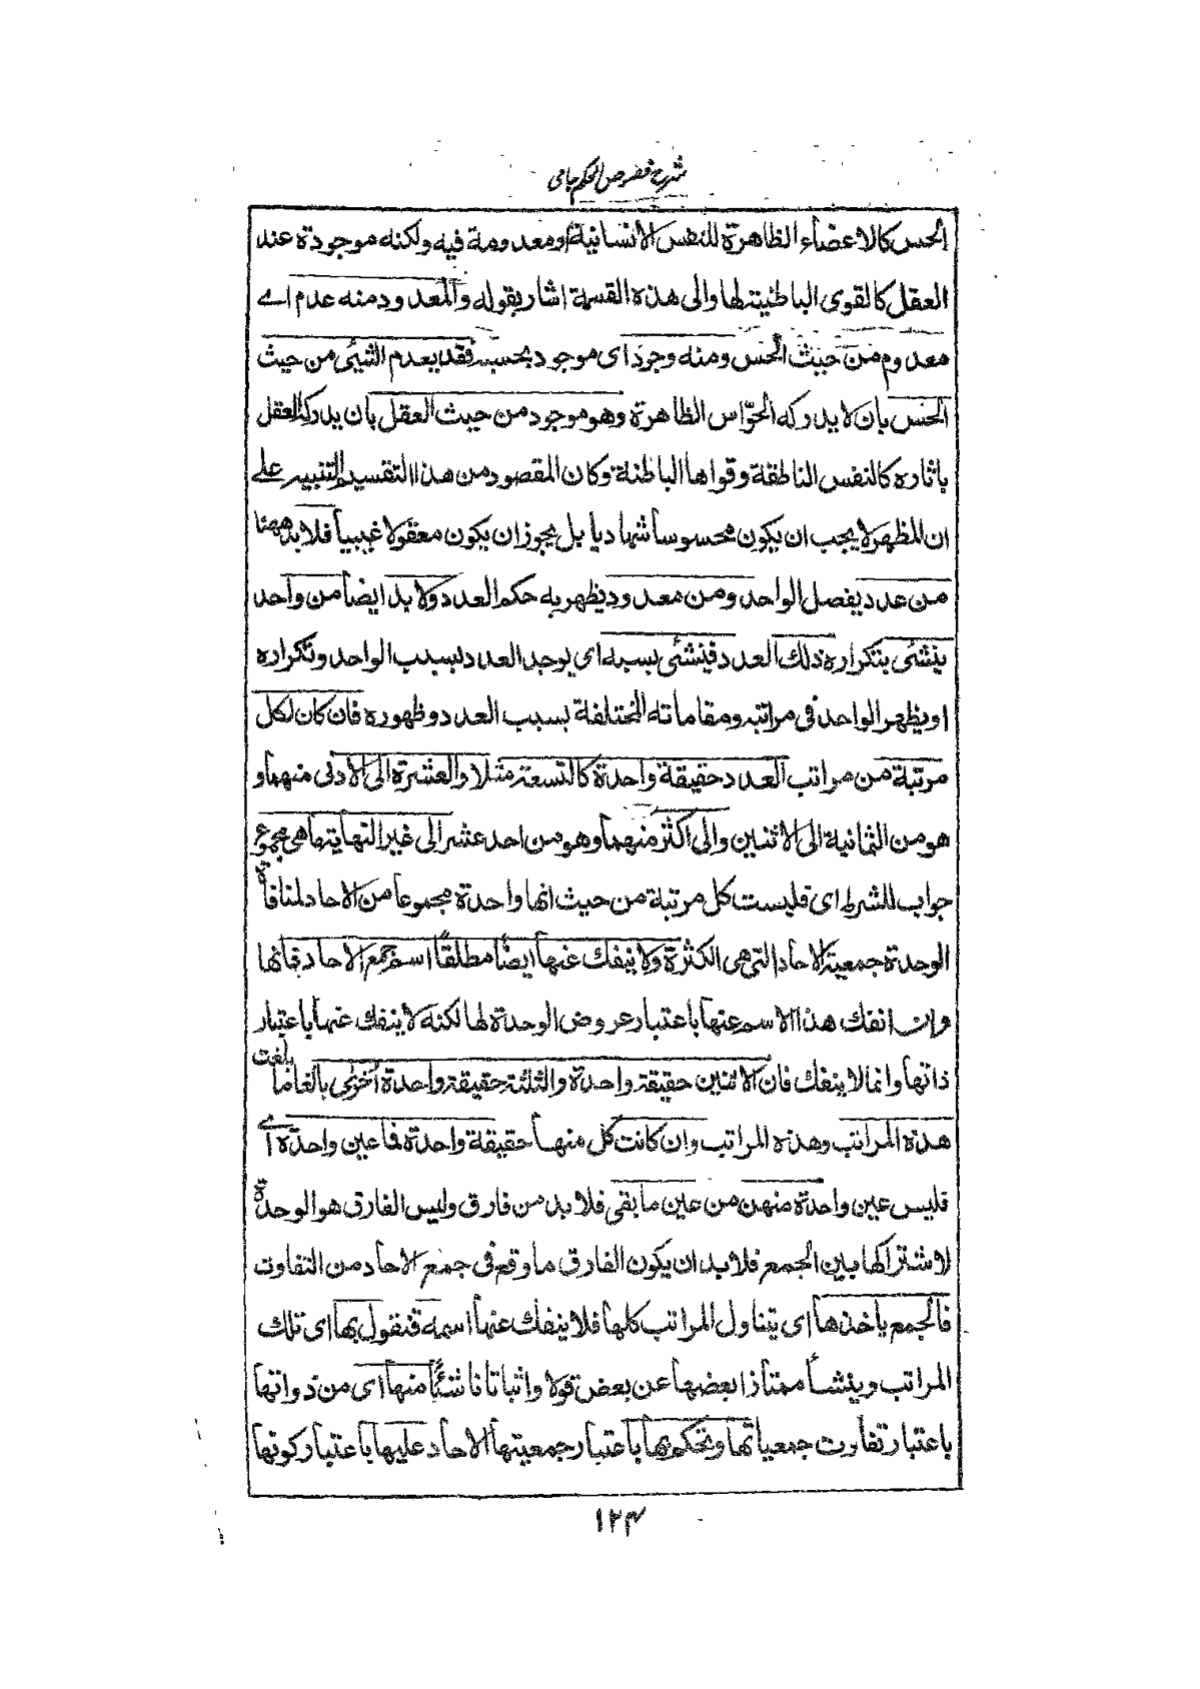 شرح فصوص الحکم جامی
الحس كالاعضاء الظاهرة للنفس الانسانية او معدومة فيه ولكنه موجودة عند
العقل كالقوى الباطنية لها والى هذه القسمة اشار بقوله والمعدود منه عدم اے
معدوم من حيث الحس ومنه وجود اى موجود بحسبه فقد يعدم الشيئ من حيث
الحس بان لا يدركه الحوّاس الظاهرة وهو موجود من حيث العقل بان يدركه العقل
باثاره كالنفس الناطقة وقواها الباطنة وكان المقصود من هذا التقسيم التنبيه على
ان المظهر لا يجب ان يكون محسوسا شهاديا بل يجوز ان يكون معقولا غيبيا فلا بد ههنا
من عدد يفصل الواحد ومن معدود يظهر به حكم العدد ولا بد ايضا من واحد
ينشئ بتكراره ذلك العدد فينشئ بسببه اى يوجد العدد بسبب الواحد وتكراره
او يظهر الواحد فى مراتبه ومقاماته المختلفة بسبب العدد وظهوره فان كان لكل
مرتبة من مراتب العدد حقيقة واحدة كالتسعة مثلا والعشرة الى الادنى منهما و
هو من الثمانية الى الاثنين والى اكثر منهما وهو من احد عشر الى غير النهاية ما هى مجموع
جواب للشرط اى فليست كل مرتبة من حيث انها واحدة مجموعا من الاحاد لمنافاة
الوحدة جمعية الاحاد التى هى الكثرة ولا ينفك عنها ايضا مطلقا اسم جمع الاحاد فانها
وان انفك هذا الاسم عنها باعتبار عروض الوحدة لها لكنه لا ينفك عنها باعتبار
ذاتها وانما لا ينفك فان الاثنين حقيقة واحدة والثلثة حقيقة واحدة اخرى بالغا ما بلغت
هذه المراتب وهذه المراتب وان كانت كل منها حقيقة واحدة فما عين واحدة اے
فليس عين واحدة منهن من عين ما بقى فلا بد من فارق وليس الفارق هو الوحدة
لاشتراكها بين الجمع فلا بد ان يكون الفارق ما وقع فى جمع الاحاد من التفاوت
فالجمع ياخذها اى يتناول المراتب كلها فلا ينفك عنها اسمه فنقول بها اى تلك
المراتب وينشأ ممتازا بعضها عن بعض قولا واثباتا ناشئا منها اى من ذواتها
باعتبار تفاوت جمعياتها ونحكم بها باعتبار جمعيتها الاحاد عليها باعتبار كونها
١٢٤